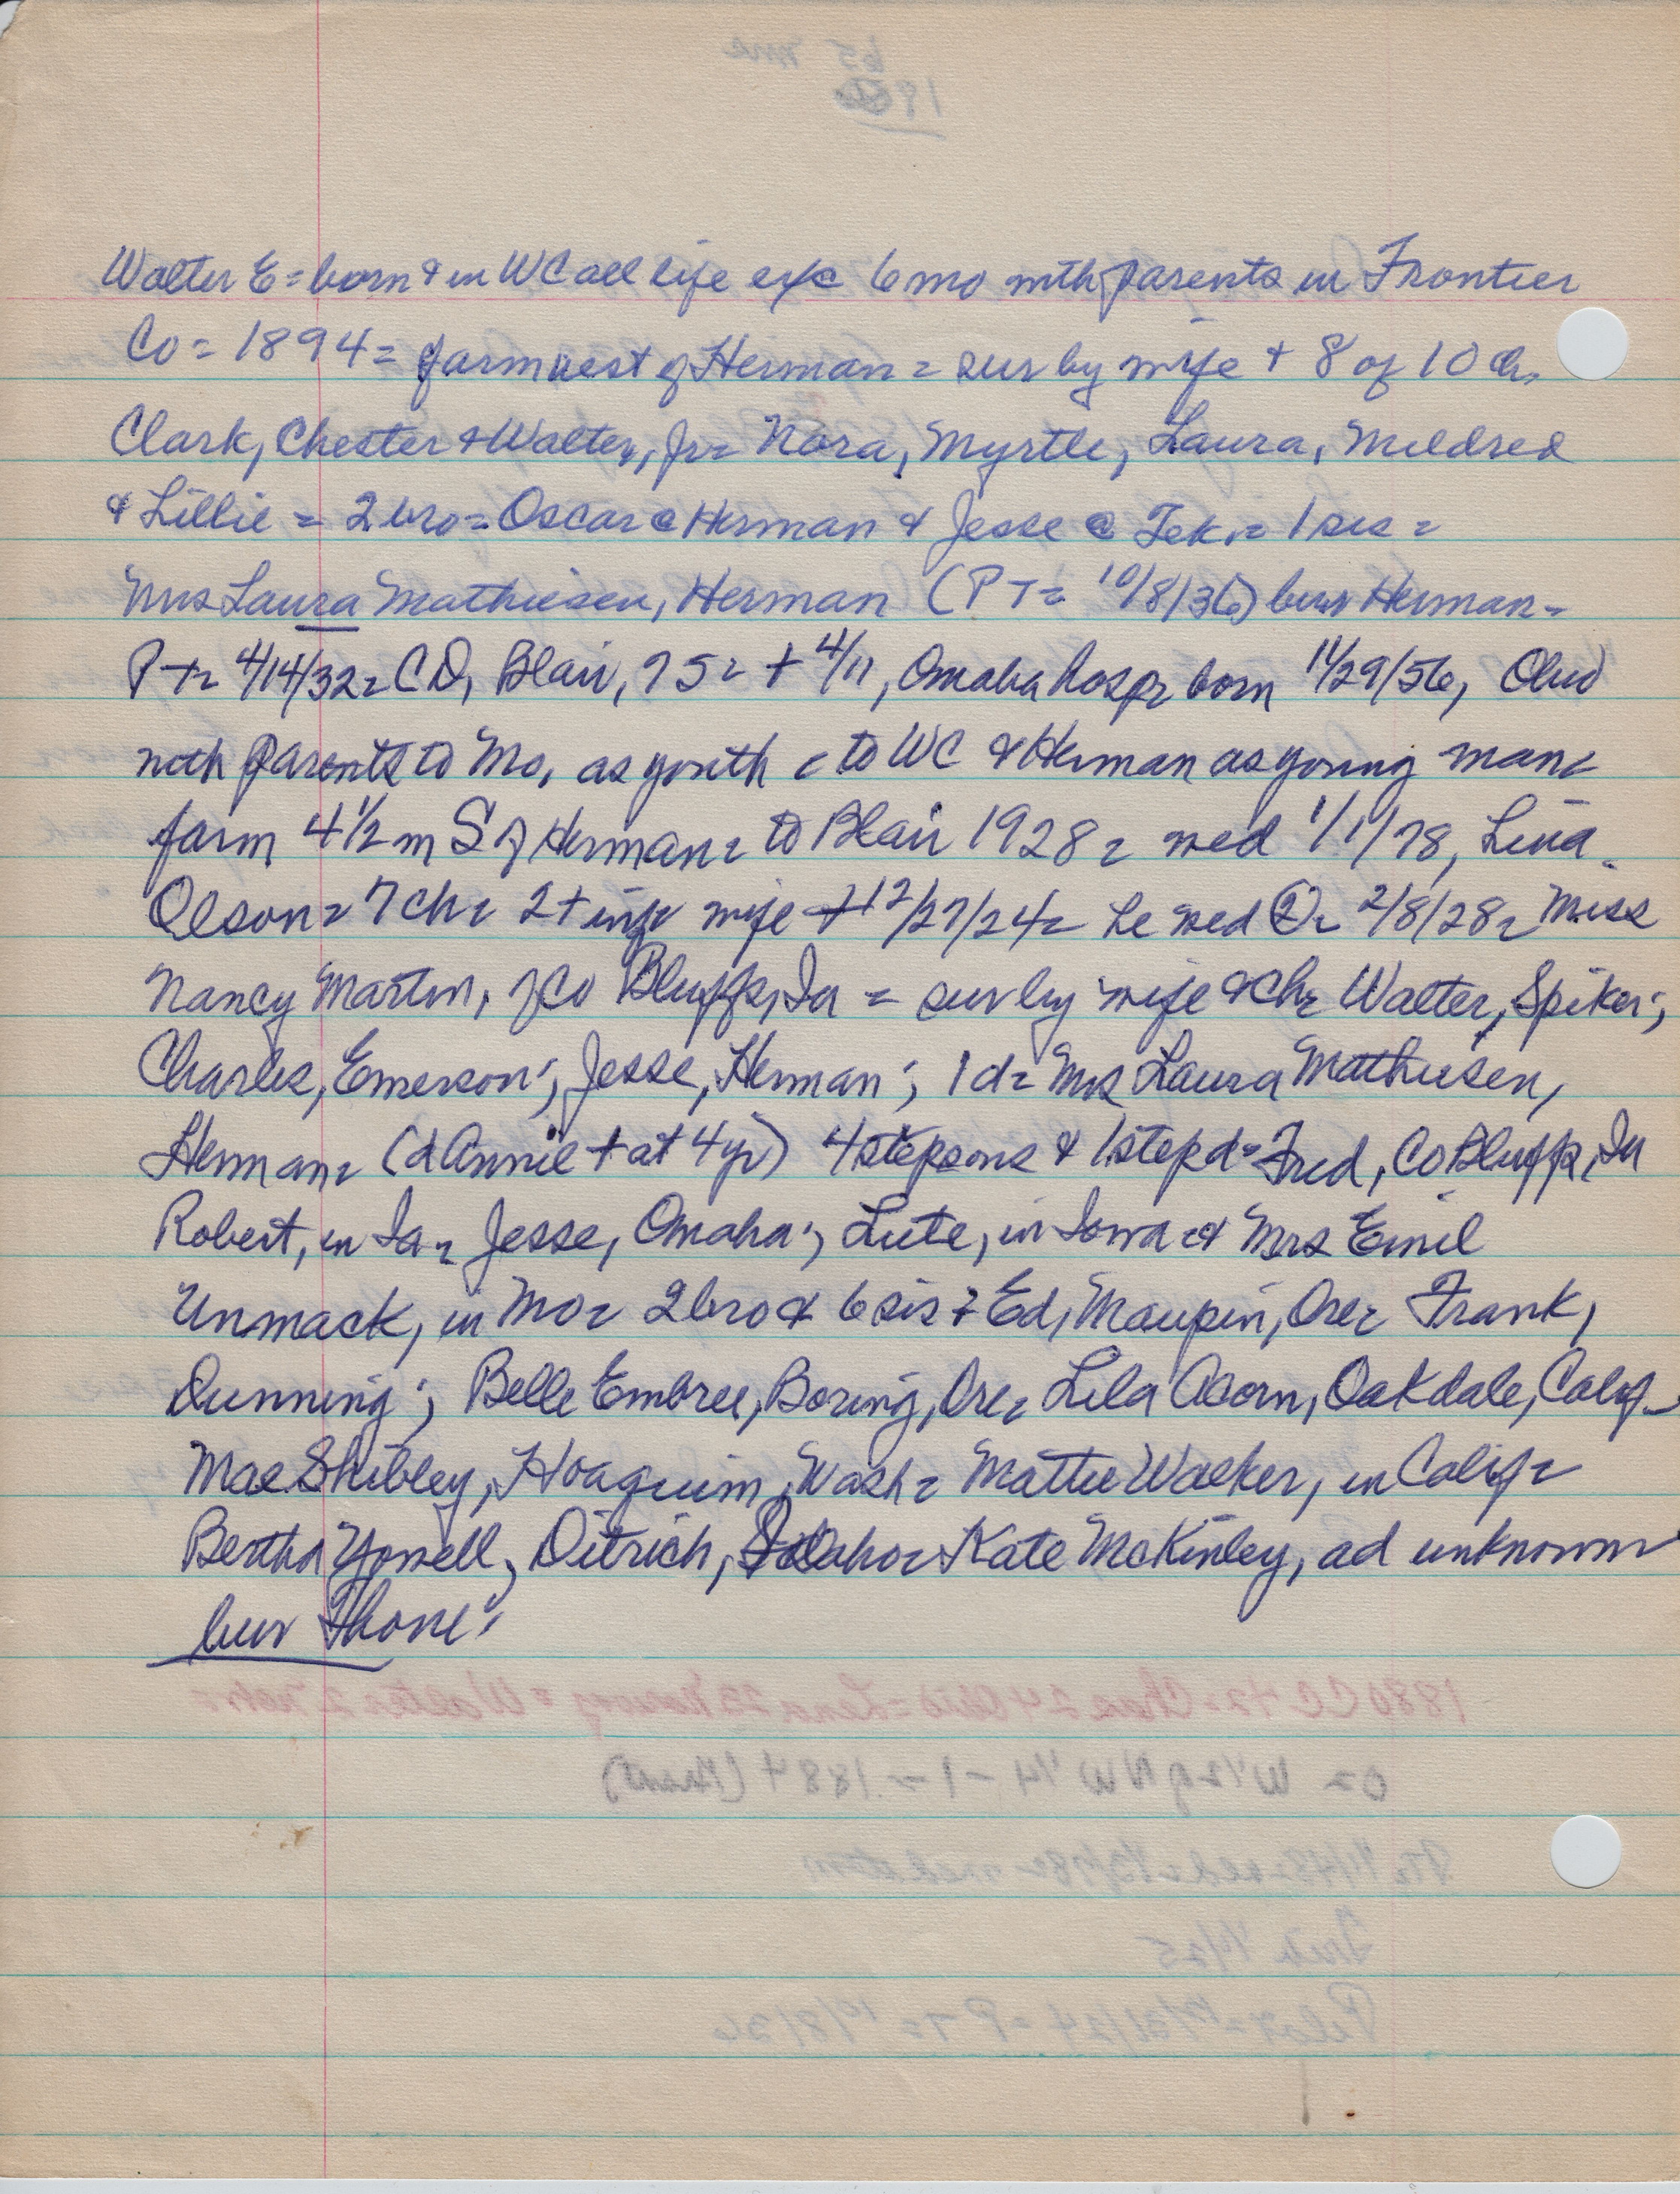 Walter E = born & in WC all life exc 6 mo with parents in Frontier
Co = 1894 = farm west of Herman = sur by wife + 8 of 10 ch,
Clark, Chester & Walter, Jr = Nora, Myrtle, Laura, Mildred
& Lillie = 2 bro = Oscar @ Herman & Jesse @ Tek. = 1 sis =
Mrs Laura Mathiesen, Herman (PT = 10/8/36) bur Herman =
PT = 4/14/32 = CD, Blair, 75 = + 4/11, Omaha hosp = born 11/29/56, Ohio
with parents to Mo, as youth = to WC & Herman as young man =
farm 4 1/2 m S of Herman = to Blair 1928 = wed 1/1/78, Lena
Olson = 7 ch = 2 + inf = wife + 12/27/24 = he wed ② = 2/8/28 = Miss
Nancy Martin, of Co Bluffs, Ia = sur by wife & ch = Walter, Spiker;
Charles, Emerson; Jesse, Herman; 1 d = Mrs Laura Mathiesen,
Herman = (d Annie + at 4 yr) 4 stepsons & 1 stepd = Fred, Co Bluffs, Ia
Robert, in Ia = Jesse, Omaha; Lute, in Iowa & Mrs Emil
Unmack, in Mo = 2 bro & 6 sis = Ed, Maupin, Ore = Frank,
Dunning; Belle Embree, Boring, Ore = Lila Acorn, Oakdale, Calif =
Mae Shibley, Hoaquim, Wash = Mattie Walker, in Calif =
Bertha Yowell, Ditrich, Idaho = Kate McKinley, ad unknown =
bur Rhone;